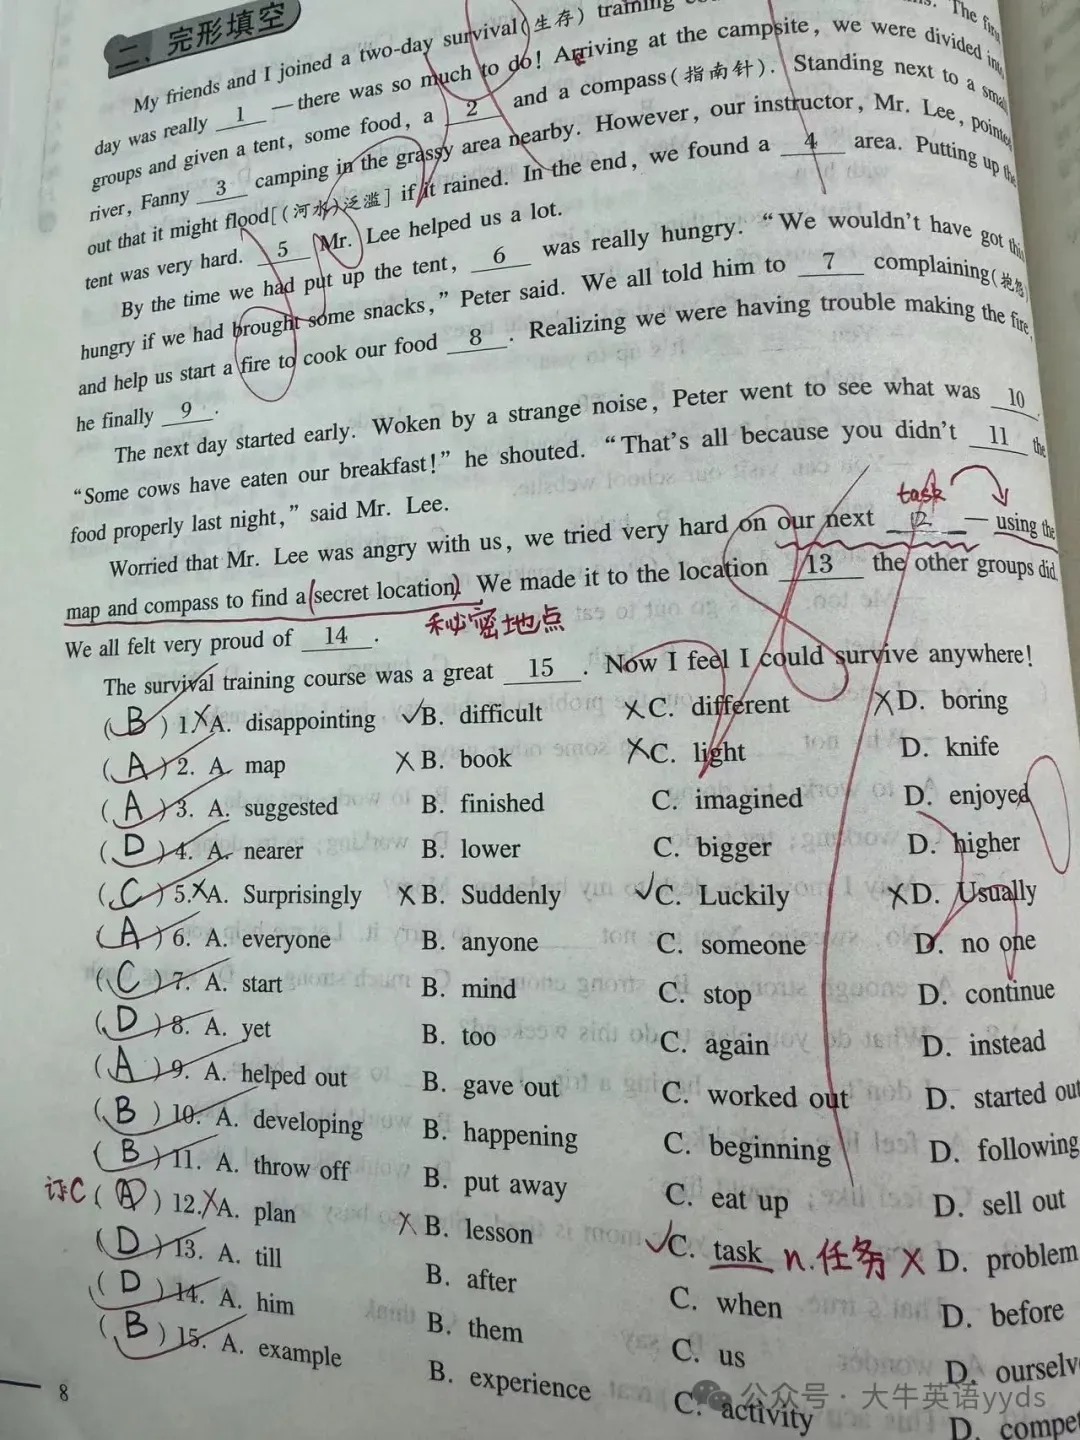 二、完形填空
My friends and I joined a two-day survival(生存) training
The first
day was really 1 —there was so much to do! Arriving at the campsite, we were divided into
groups and given a tent, some food, a 2 and a compass(指南针). Standing next to a small
river, Fanny 3 camping in the grassy area nearby. However, our instructor, Mr. Lee, pointed
out that it might flood[(河水)泛滥] if it rained. In the end, we found a 4 area. Putting up the
tent was very hard. 5 Mr. Lee helped us a lot.
By the time we had put up the tent, 6 was really hungry. “We wouldn't have got this
hungry if we had brought some snacks,” Peter said. We all told him to 7 complaining(抱怨)
and help us start a fire to cook our food 8 . Realizing we were having trouble making the fire,
he finally 9 .
The next day started early. Woken by a strange noise, Peter went to see what was 10 .
“Some cows have eaten our breakfast!” he shouted. “That's all because you didn't 11 the
food properly last night,” said Mr. Lee.
task
Worried that Mr. Lee was angry with us, we tried very hard on our next 12 — using the
map and compass to find a (secret location). We made it to the location 13 the other groups did.
秘密地点
We all felt very proud of 14 .
The survival training course was a great 15 . Now I feel I could survive anywhere!
( B ) 1.×A. disappointing ✓B. difficult ×C. different ×D. boring
( A ) 2. A. map ×B. book ×C. light D. knife
( A ) 3. A. suggested B. finished C. imagined D. enjoyed
( D ) 4. A. nearer B. lower C. bigger D. higher
( C ) 5.×A. Surprisingly ×B. Suddenly ✓C. Luckily ×D. Usually
( A ) 6. A. everyone B. anyone C. someone D. no one
( C ) 7. A. start B. mind C. stop D. continue
( D ) 8. A. yet B. too C. again D. instead
( A ) 9. A. helped out B. gave out C. worked out D. started out
( B ) 10. A. developing B. happening C. beginning D. following
( B ) 11. A. throw off B. put away C. eat up D. sell out
订C ( A ) 12.×A. plan ×B. lesson ✓C. task n.任务 ×D. problem
( D ) 13. A. till B. after C. when D. before
( D ) 14. A. him B. them C. us D. ourselv
( B ) 15. A. example B. experience C. activity D. compet
8
公众号·大牛英语yyds